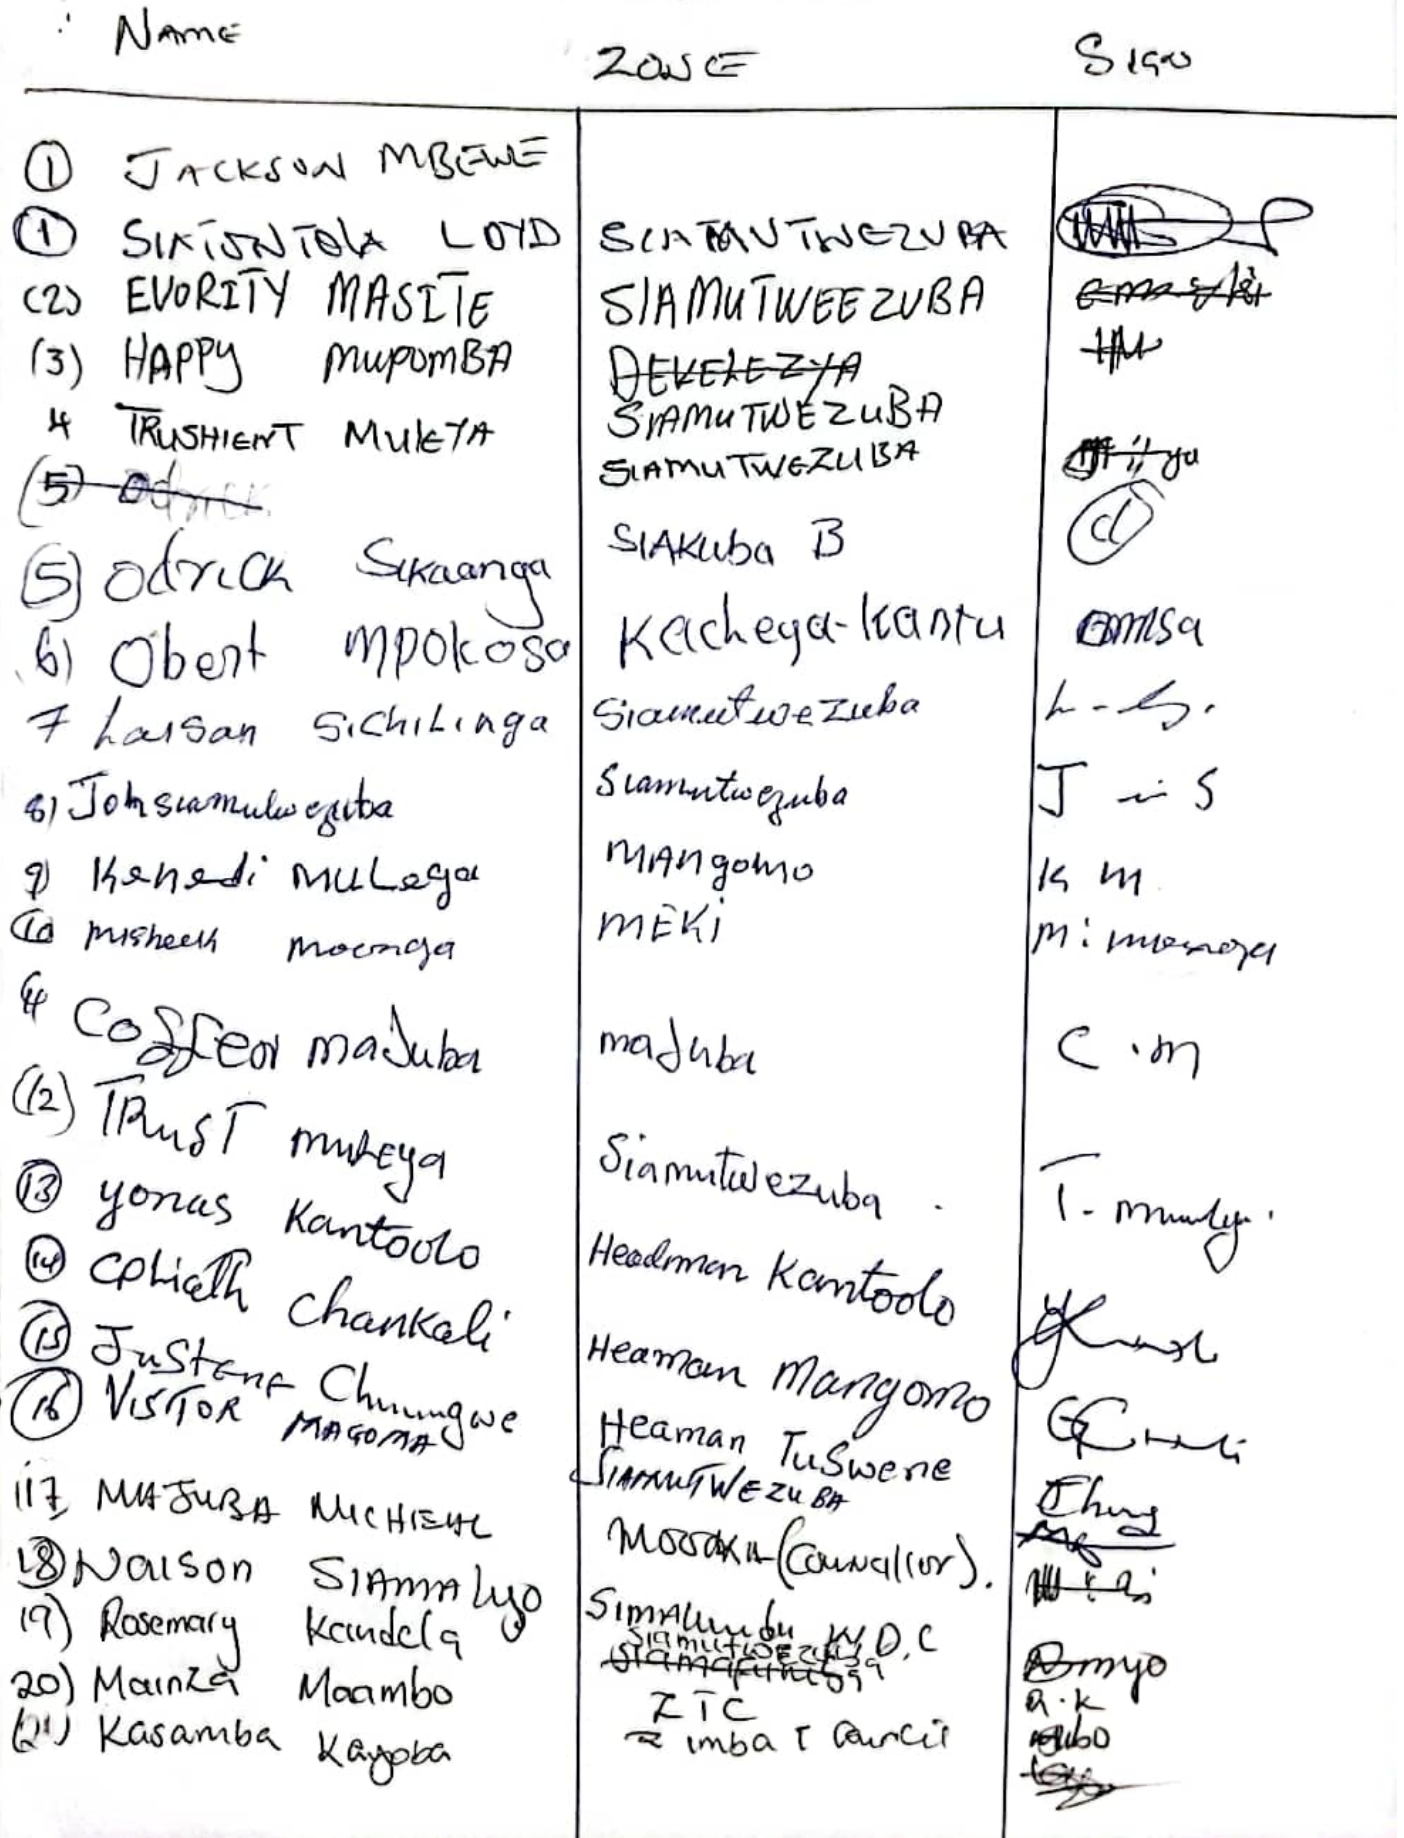 NAME ZONE SIGN
① JACKSON MBEWE
① SIATONTOLA LOYD SIAMUTWEZUBA
(2) EVORITY MASITE SIAMUTWEEZUBA
(3) HAPPY MUPOMBA DEVELEZYA HM
SIAMUTWEZUBA
4 TRUSHIENT MULEYA SIAMUTWEZUBA
(5) Odrick
(5) Odrick Sikaanga SIAKUba B d
6) Obert MPOKOSa Kacheya-Kantu
7 Laisan SiCHiLinga Siamutwezuba L-S.
8) Joh siamutwezuba Siamutwezuba J S
9) Kenedi MuLega MANgomo K M
10 Misheck Moonga MEKi M: moonga
Coffeor maJuba maJuba C.m
(12) TRUST muleya Siamutwezuba T-
⑬ yonas Kantoolo Headman Kantoolo
⑭ Chankali Heaman Mangomo
⑮ JuStene Chuungwe Heaman TuSwene
⑯ VISITOR MAGOMA SIAMUTWEZUBA
17 MAJUBA MICHIEAL (Councillor).
18) Naison SIAMALyo W.D.C
19) Rosemary Kandela SIAMUTWEZUBA
20) Mainza Maambo ZTC a.k
(21) Kasamba Kayoba Zimba T Council